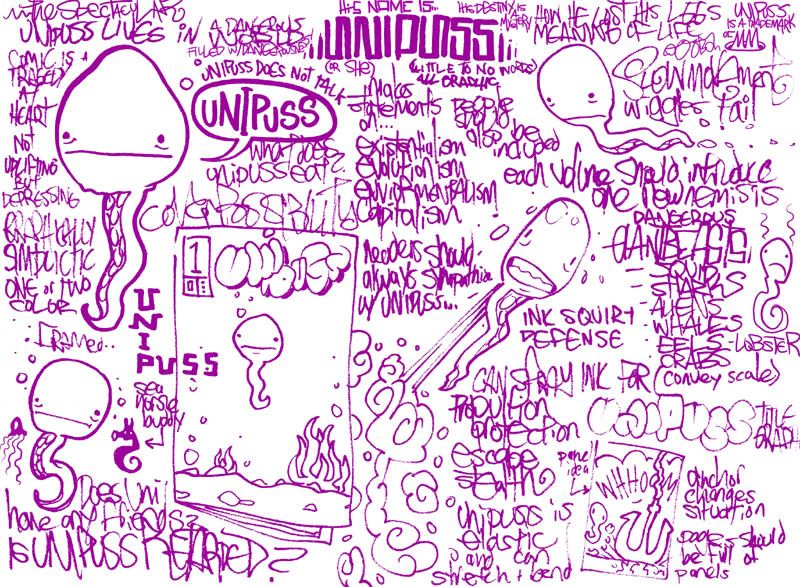 THE SPECTACULAR
UNIPUSS LIVES IN A DANGEROUS WORLD
FILLED W/ DANGEROUS
HIS NAME IS...
UNIPUSS
(OR SHE)
(LITTLE TO NO WORDS)
ALL GRAPHIC
HIS DESTINY IS MYSTERY
HOW HE LOST HIS LEGS
MEANING OF LIFE
UNIPUSS
IS A TRADEMARK
OF
COMIC IS
TRAGEDY
AT
HEART
NOT
UPLIFTING
BUT
DEPRESSING
GRAPHICALLY
SIMPLICTIC
ONE OR TWO
COLOR
UNIPUSS DOES NOT TALK
UNIPUSS
WHAT DOES
UNIPUSS EAT?
COVER POSSIBILITY
1
UNIPUSS
UNI
PUSS
FRAMED..
sea
horse
buddy
Does Uni
have any friends?
IS UNIPUSS RETARDED?
Makes
statements
on...
existentialism
evolutionism
enviormentalism
capitalism
people
should
also be
included
readers should
always sympathise
w/ UNIPUSS...
Slow movement
wiggles tail
each volume should introduce
one new nemisis
DANGEROUS
GIANT BEASTS
SQUID
SHARKS
ALIENS
WHALES
EELS - LOBSTER
CRABS
(convey scale)
INK SQUIRT
DEFENSE
CAN SPRAY INK FOR
PROPULTION
protection
escape
stealth
unipuss is
elastic
and can
stretch + bend
UNIPUSS
TITLE
GRAPHIC
panel
idea
WHHOOM
anchor
changes
situation
pages should
be full of
panels